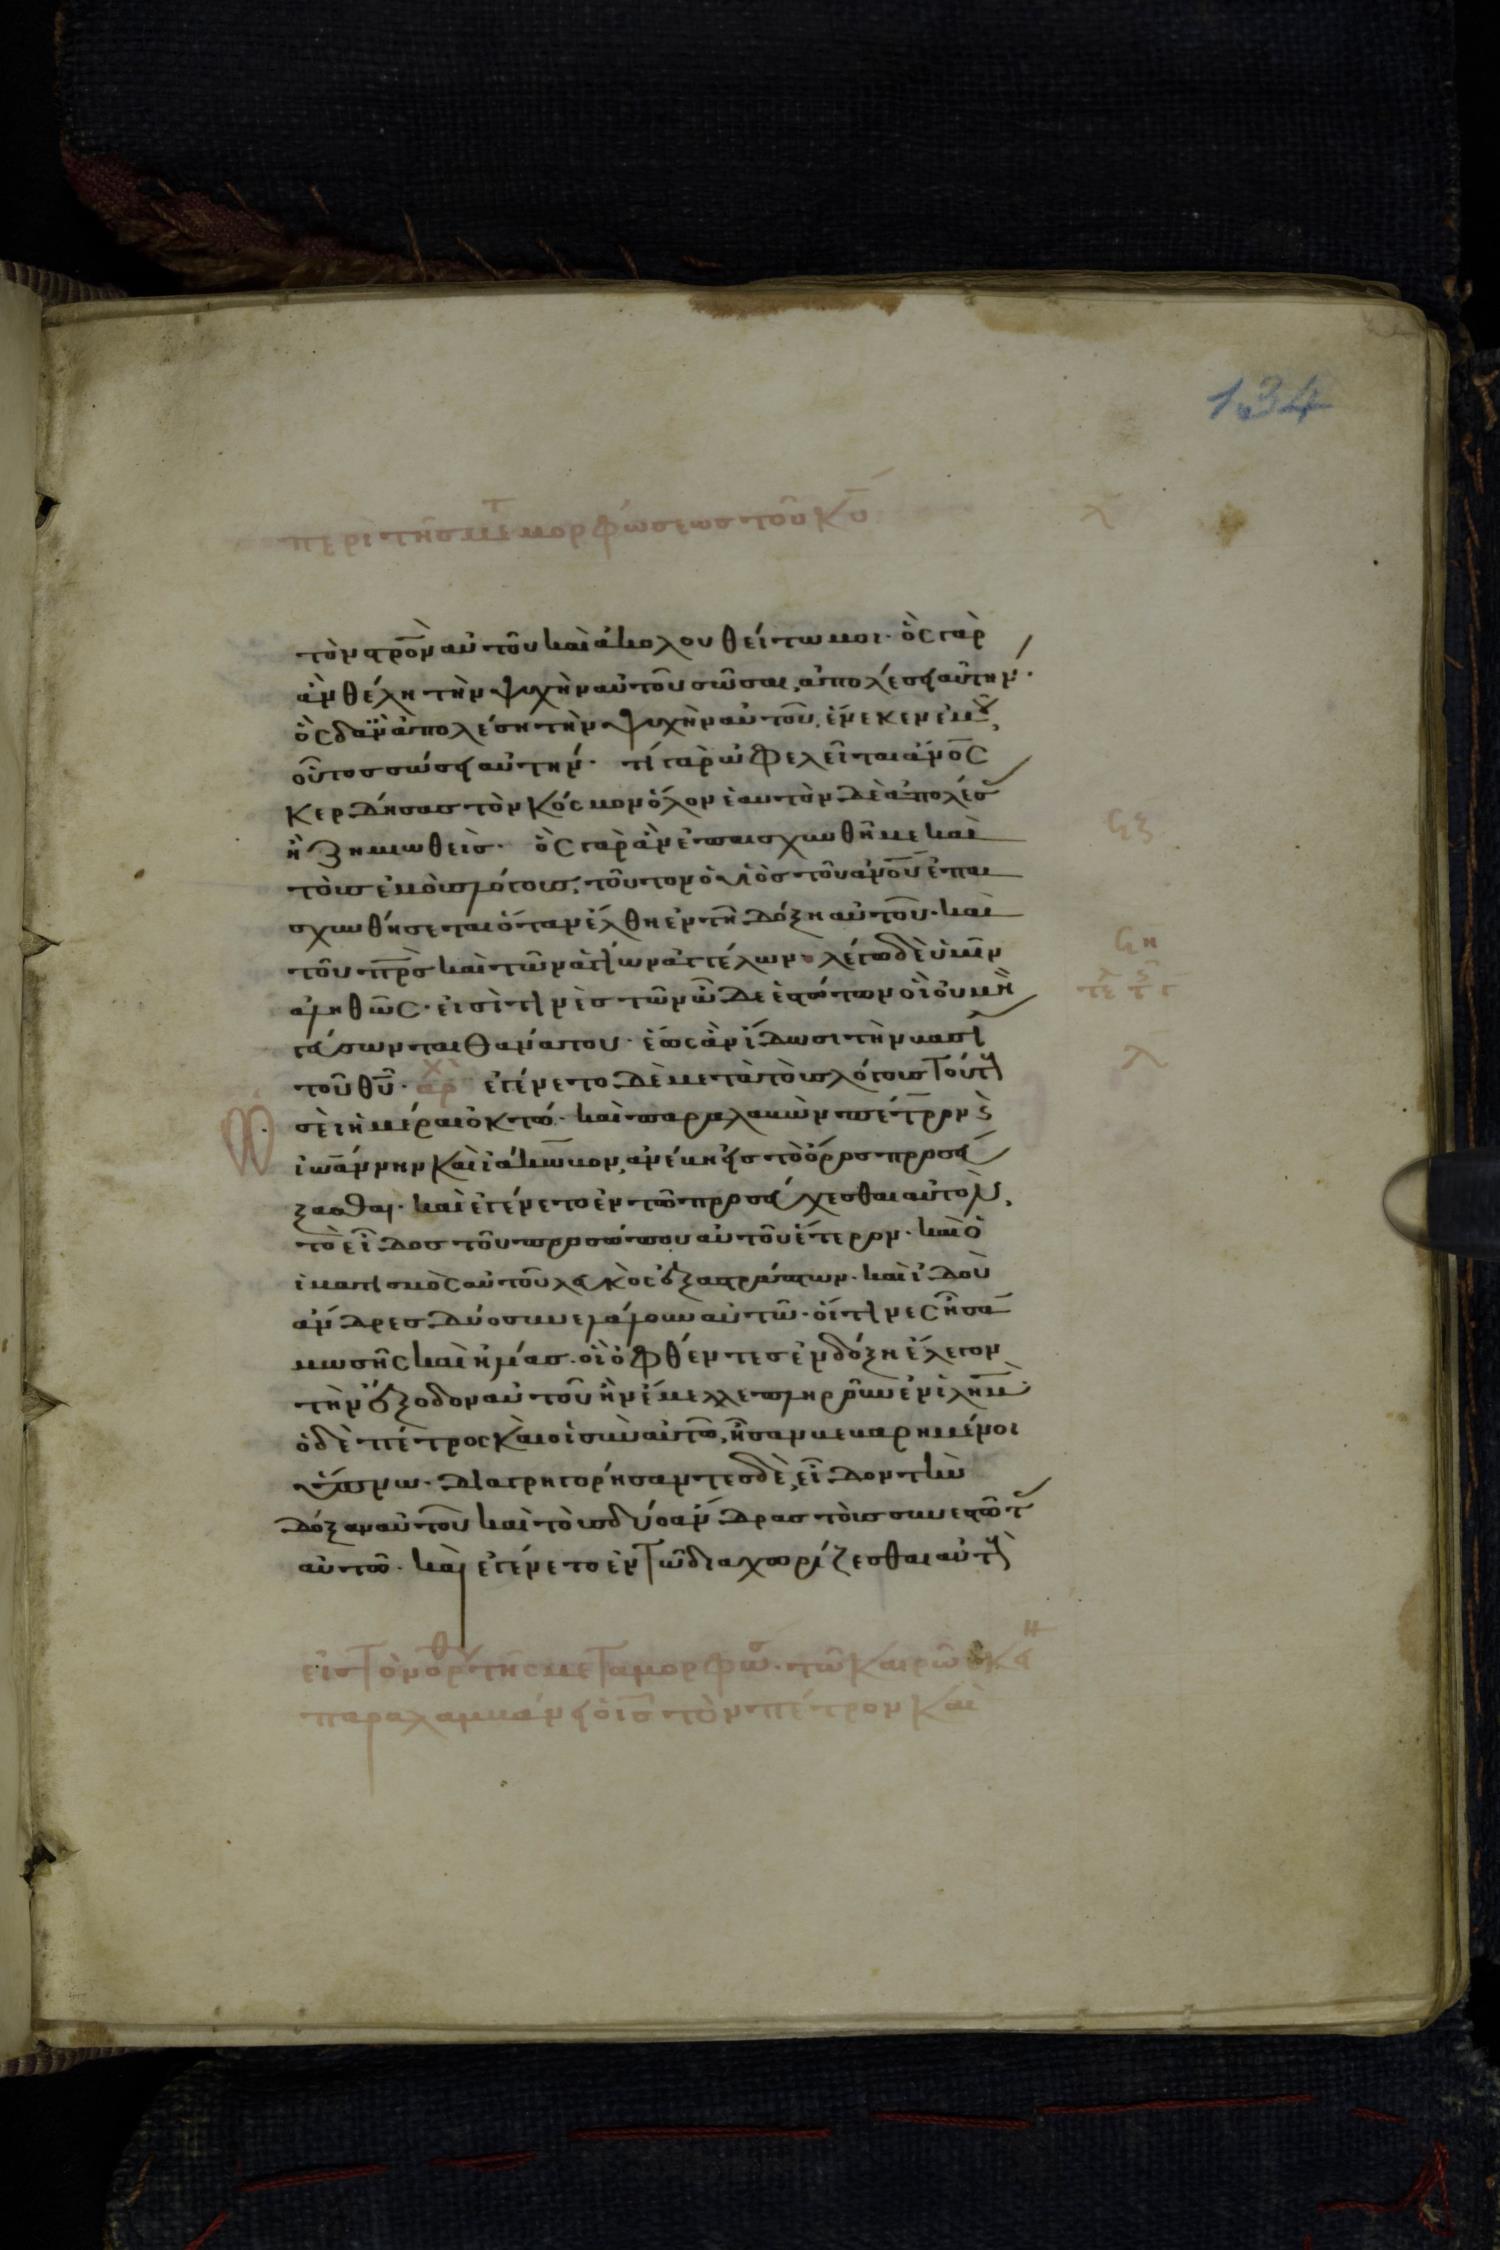 134
περὶ τῆς με̅τμορφώσεως τοῦ κ̅υ̅ λ
τὸν στρο̅ν̀ αὐτοῦ καὶ ἀκολουθείτω μοι· ὃς γὰρ
ἂν θέλη τὴν ψυχὴν αὐτοῦ σῶσαι, ἀπολέσει αὐτήν·
ὃς δ' ἂν ἀπολέση τὴν ψυχὴν αὐτοῦ, ἕνεκεν ἐμοῦ,
οὗτος σώσει αὐτήν· τί γὰρ ὠφελεῖται α̅νο̅ς
κερδήσας τὸν κόσμον ὅλον ἑαυτὸν δὲ ἀπολέσ
ἢ ζημιωθείς· ὃς γὰρ ἂν ἐπαισχυνθῆ με καὶ
τοὺς ἐμοὺς λόγους, τοῦτον ὁ υἱὸς τοῦ α̅νο̅υ̅ ἐπαι
σχυνθήσεται ὅταν ἔλθη ἐν τῆ δόξη αὐτοῦ· καὶ
τοῦ π̅ρ̅ς καὶ τῶν ἁγίων ἀγγέλων· λέγω δὲ ὑμῖν
ἀληθῶς· εἰσί τινες τῶν ὧδε ἑστώτων οἳ οὐ μὴ
γεύσωνται θανάτου· ἕως ἂν ἴδωσι τὴν βασι
τοῦ θ̅υ̅· ἀρχ ἐγένετο δὲ μετὰ τοὺς λόγους τούτ
σεὶ ἡμέραι ὀκτώ· καὶ παραλαβὼν πέτρον κ
ἰωάννην καὶ ἰάκωβον, ἀνέβη εἰς τὸ ὄρος προσεύ
ξασθαι· καὶ ἐγένετο ἐν τῶ προσεύχεσθαι αὐτὸν,
τὸ εἶδος τοῦ προσώπου αὐτοῦ ἕτερον· καὶ ὁ
ἱματισμὸς αὐτοῦ λευκὸς ἐξαστράπτων· καὶ ἰδοὺ
ἄνδρες δύο συνελάλουν αὐτῶ· οἵτινες ἦσαν
μωσῆς καὶ ἠλίας· οἳ ὀφθέντες ἐν δόξη ἔλεγον
τὴν ἔξοδον αὐτοῦ ἣν ἔμελλε πληροῦν ἐν ἱλη̅μ̅·
ὁ δὲ πέτρος καὶ οἱ σὺν αὐτῶ, ἦσαν βεβαρημένοι
ὕπνω· διαγρηγορήσαντες δὲ, εἶδον τὴν
δόξαν αὐτοῦ καὶ τοὺς δύο ἄνδρας τοὺς συνεστῶτ
αὐτῶ· καὶ ἐγένετο ἐν τῶ διαχωρίζεσθαι αὐτ
εἰς τὸν ὄρθρ τῆς μεταμορφώ· τῶ καιρῶ
παραλαμβάνει ὁ ι̅ς̅ τὸν πέτρον καὶ